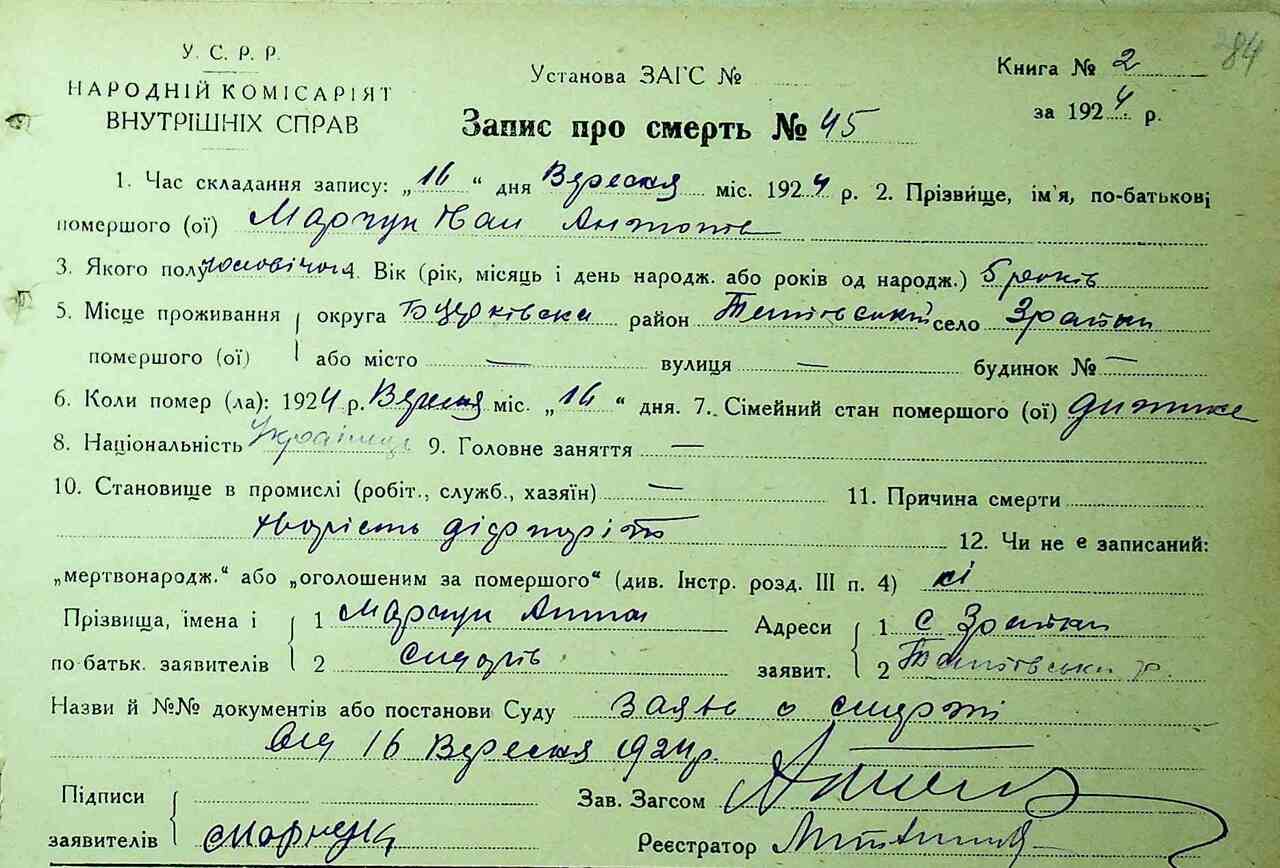 284
У. С. Р. Р.
НАРОДНІЙ КОМІСАРІЯТ
ВНУТРІШНІХ СПРАВ
Установа ЗАГС №
Книга № 2
за 1924 р.
Запис про смерть № 45
1. Час складання запису: „16“ дня Вересня міс. 1924 р. 2. Прізвище, ім'я, по-батькові
помершого (ої) Марчук Іван Антонів
3. Якого полу чоловічого 4. Вік (рік, місяць і день народж. або років од народж.) 5 років
5. Місце проживання округа Бцерківська район Тетіївський село Зрайки
помершого (ої) або місто — вулиця — будинок № —
6. Коли помер (ла): 1924 р. Вересня міс. „16“ дня. 7. Сімейний стан помершого (ої) дитина
8. Національність Українець 9. Головне заняття —
10. Становище в промислі (робіт., служб., хазяїн) — 11. Причина смерти
хворість діфтеріт 12. Чи не є записаний:
„мертвонародж.“ або „оголошеним за помершого“ (див. Інстр. розд. III п. 4) ні
Прізвища, імена і 1 Марчук Антон Адреси 1 с Зрайки
по батьк. заявителів 2 Сидорів заявит. 2 Тетіївськи р.
Назви й №№ документів або постанови Суду Заява о смерті
від 16 Вересня 1924 р.
Підписи Зав. Загсом
заявителів Марчук Реєстратор